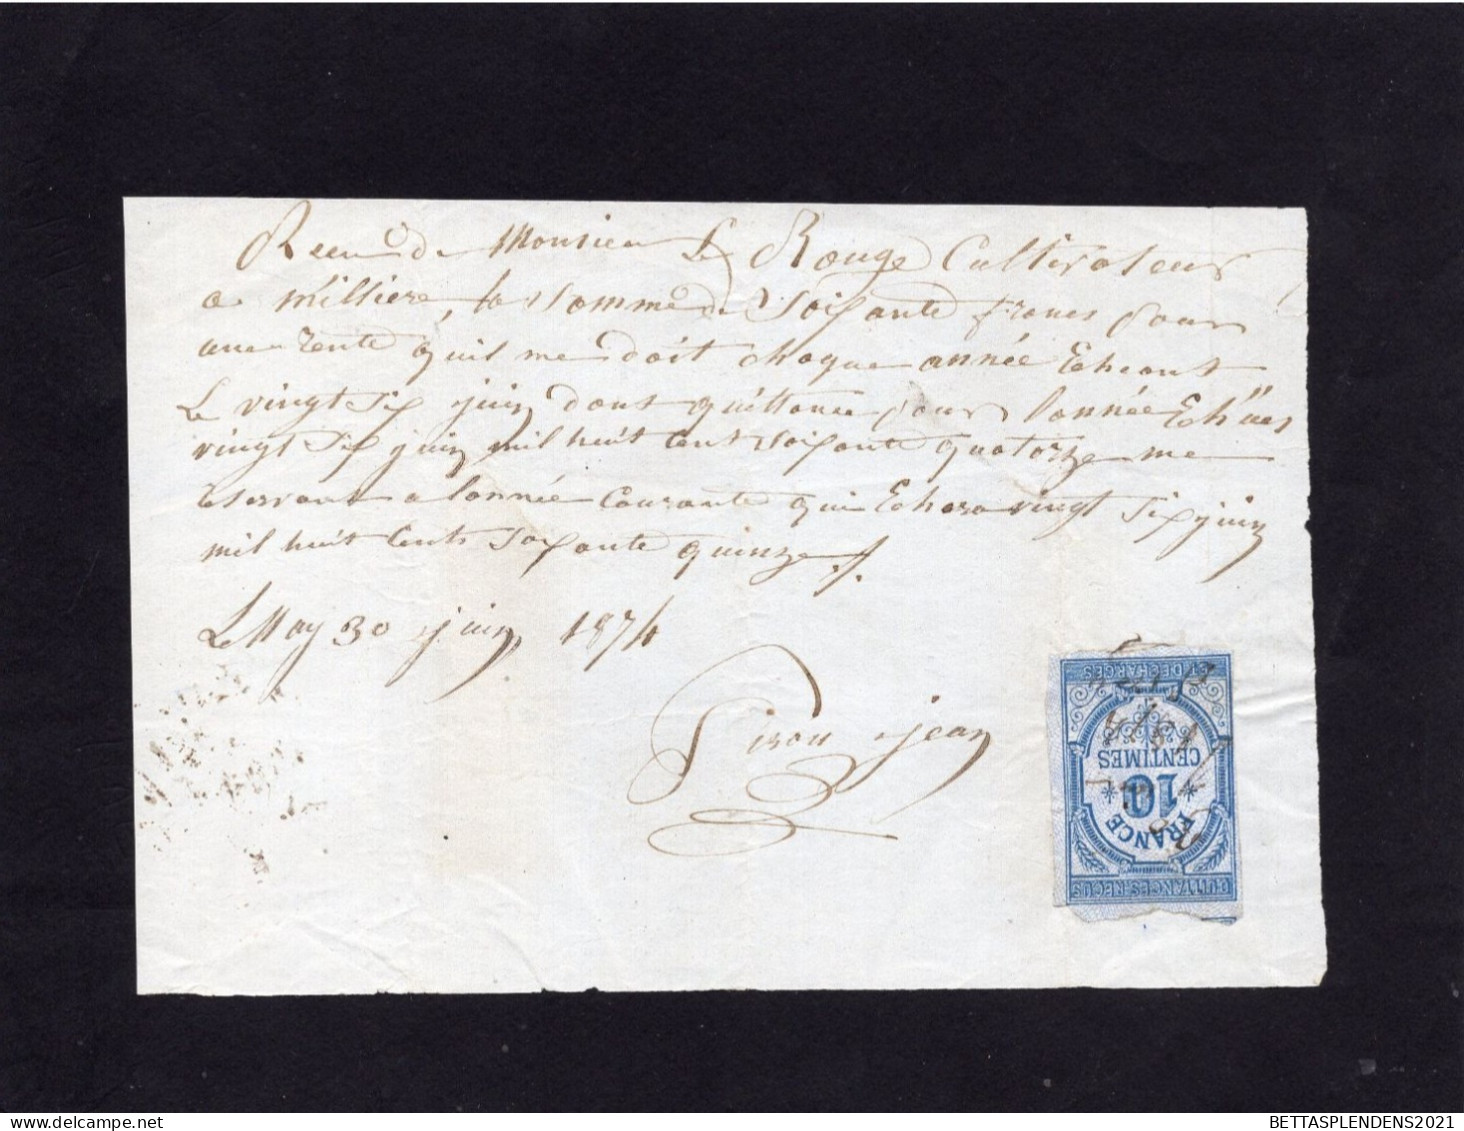 Recu de Monsieur Le Rouge Cultivateur
a Millière, la somme de Soixante francs pour
une rente qu'il me doit chaque année Echeant
Le vingt six juin dont quittance pour l'année Echues
vingt six juin mil huit Cent Soixante quatorze me
reservant a l'année Courante qui Echera vingt six juin
mil huit Cents Soixante quinze
Le May 30 juin 1874
Pirou jean
ET DÉCHARGES
CENTIMES
10
FRANCE
QUITTANCES REÇUS
BETTASPLENDENS2021